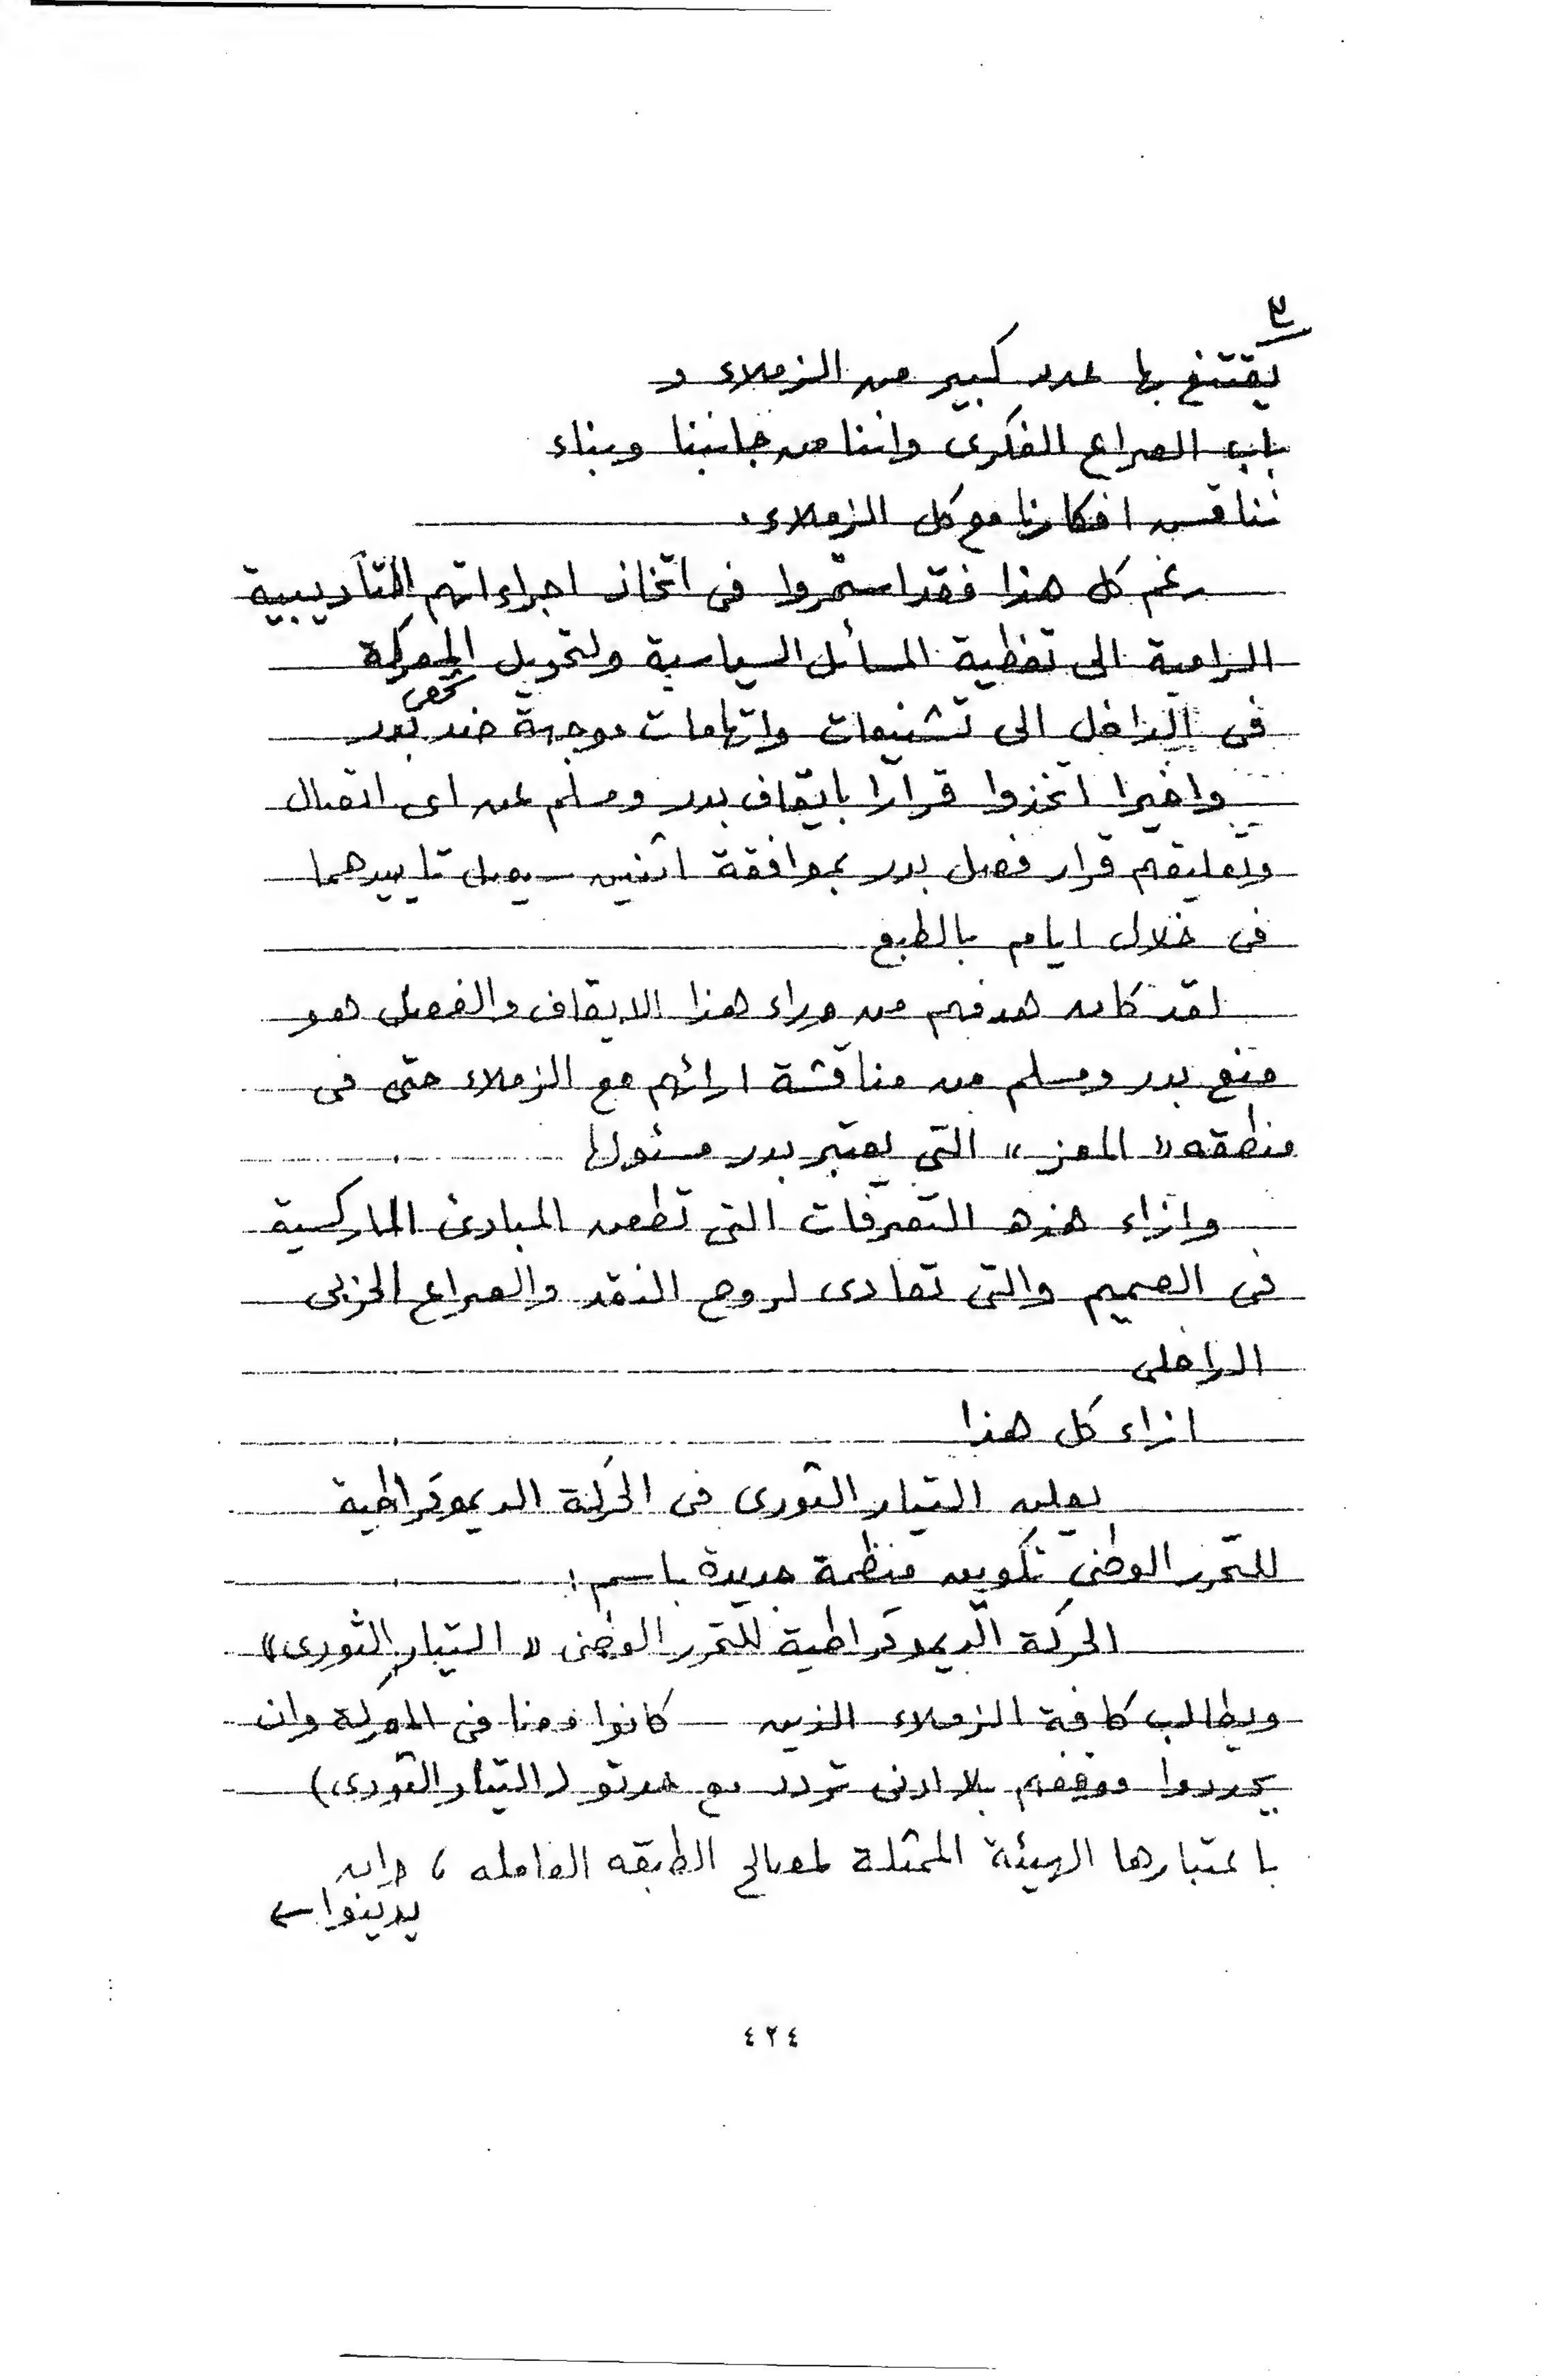 ٣
يقتنع بها عدد كبير من الزملاء و
باب الصراع الفكرى واننا من جانبنا وبناء
نناقش افكارنا مع كل الزملاء.
رغم كل هذا فقد استمروا فى اتخاذ اجراءاتهم التأديبية
الرامية الى تغطية المسائل السياسية ولتحويل المعركة
فى الداخل الى تشنيعات واتهامات موجهة ضد بدر
واخيرا اتخذوا قرارا بايقاف بدر ومسلم عن اى اتصال
وتعليقهم قرار فصل بدر بموافقة اثنين سيصل تاييدهما
فى خلال ايام بالطبع
لقد كان هدفهم من وراء هذا الايقاف والفصل هو
منع بدر ومسلم من مناقشة ارائهم مع الزملاء حتى فى
منطقه « المعز » التى يعتبر بدر مسئولها
وازاء هذه التصرفات التى تطعن المبادئ الماركسية
فى الصميم والتى تعادى لروح النقد والصراع الحزبى
الداخلى
ازاء كل هذا
يعلن التيار الثورى فى الحركة الديموقراطية
للتحرر الوطنى تكوين منظمة جديدة باسم :
الحركة الديموقراطية للتحرر الوطنى « التيار الثورى »
ويطالب كافة الزملاء الذين كانوا معنا فى المعركة وان
يحددوا موقفهم بلا ادنى تردد مع حدتو ( التيار الثورى )
باعتبارها الهيئة الممثلة لمصالح الطبقه العامله ، وان
يدينوا ←
٤٢٤